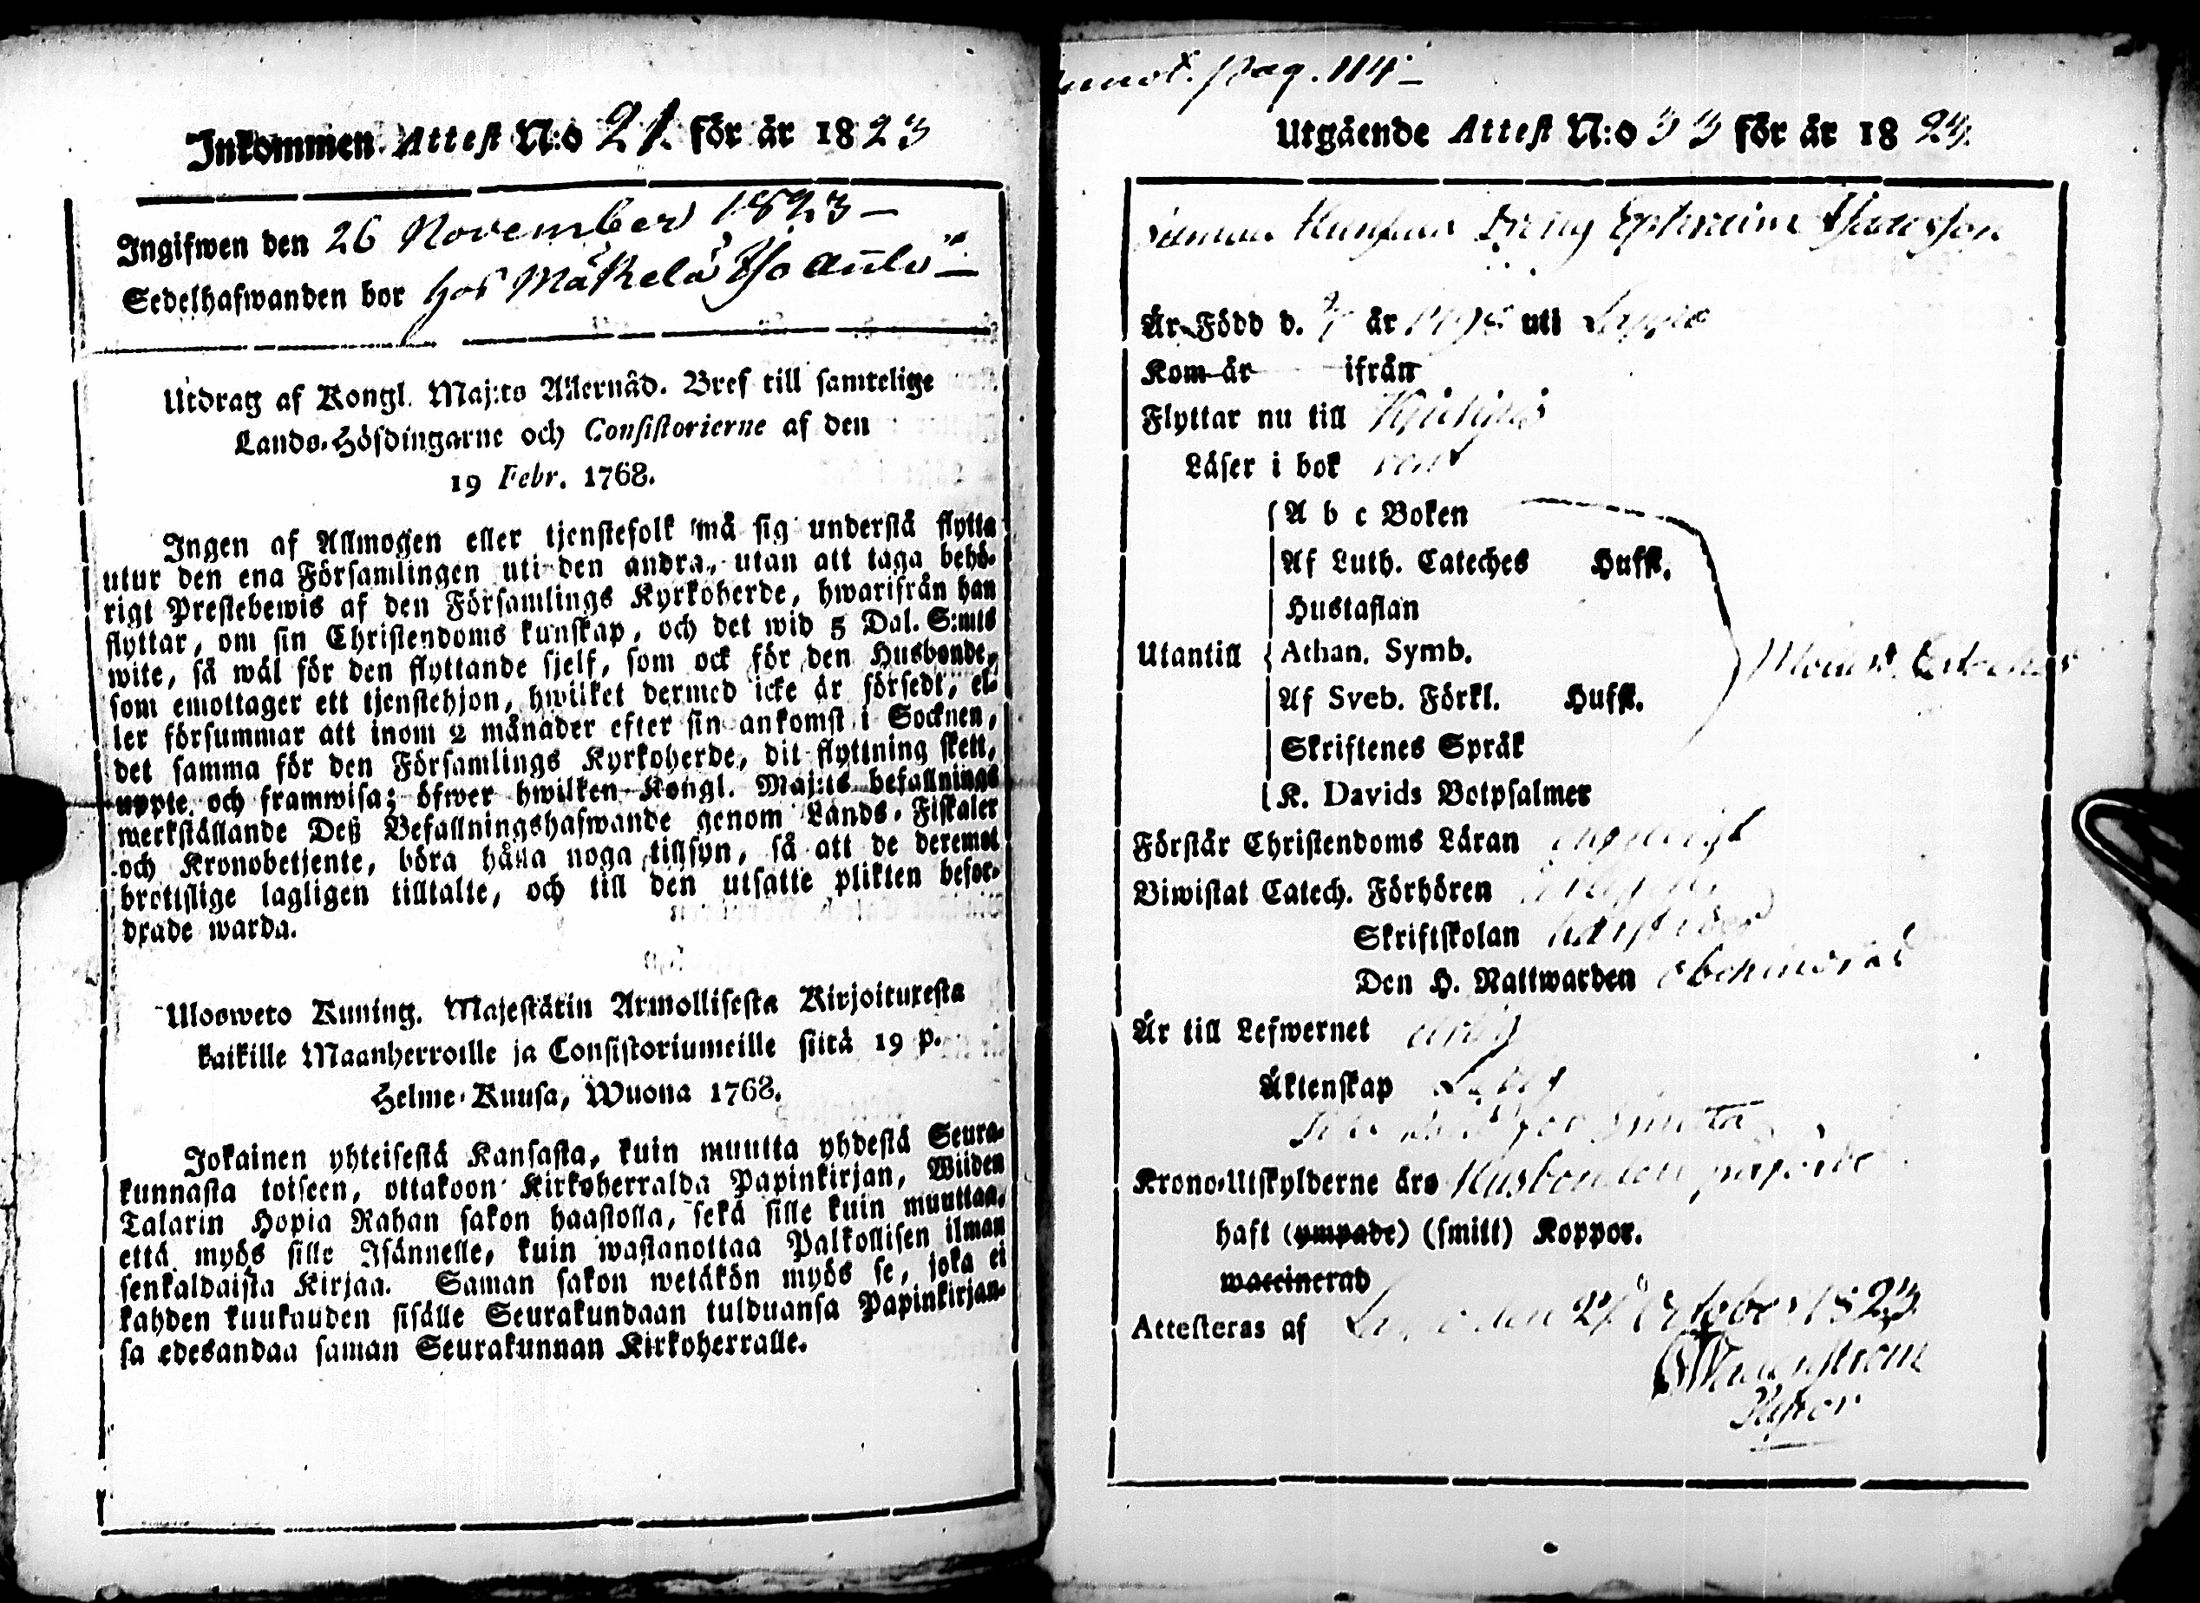 Inkommen Attest N:o 21 för år 1823
Ingifwen den 26 November 1823 –
Sedelhafwanden bor hos Mäkelä
Utdrag af Kongl. Maj:ts Allernåd. Bref till samtelige
Lands-Höfdingarne och Consistorierne af den
19 Febr. 1768.
Ingen af Allmogen eller tjenstefolk må sig understå flytta
utur den ena Församlingen uti den andra, utan att taga behö-
rigt Prestebewis af den Församlings Kyrkoherde, hwarifrån han
flyttar, om sin Christendoms kunskap, och det wid 5 Dal. S:mts
wite, så wäl för den flyttande sjelf, som ock för den Husbonde,
som emottager ett tjenstehjon, hwilket dermed icke är försedt, el-
ler försummar att inom 2 månader efter sin ankomst i Socknen,
det samma för den Församlings Kyrkoherde, dit flyttning skett,
uppte och framwisa; öfwer hwilken Kongl. Maj:ts befallnings
werkställande Deß Befallningshafwande genom Lands-Fiskaler
och Kronobetjente, böra hålla noga tillsyn, så att de deremot
brottslige lagligen tilltalte, och till den utsatte plikten befor-
drade warda.
Ulosweto Kuning. Majestätin Armollisesta Kirjoituxesta
kaikille Maanherroille ja Consistoriumeille siitä 19 p.
Helme-Kuusa, Wuona 1768.
Jokainen yhteisestä Kansasta, kuin muutta yhdestä Seura-
kunnasta toiseen, ottakoon Kirkoherralda Papinkirjan, Wiiden
Talarin Hopia Rahan sakon haastolla, sekä sille kuin muuttaa,
että myös sille Isännelle, kuin wastanottaa Palkollisen ilman
senkaldaista Kirjaa. Saman sakon wetäkön myös se, joka ei
kahden kuukauden sisälle Seurakundaan tulduansa Papinkirjan-
sa edesandaa saman Seurakunnan Kirkoherralle.
pag. 114 –
Utgående Attest N:o 33 för år 1823.
Dräng Ephraim
Är Född d. år uti Lappo
Kom år ifrån
Flyttar nu till
Läser i bok rent
A b c Boken
Af Luth. Cateches Hufst.
Hustaflan
Utantill Athan. Symb.
Af Sveb. Förkl. Hufst.
Skriftenes Språk
K. Davids Botpsalmer
Förstår Christendoms Läran
Biwistat Catech. Förhören
Skriftskolan
Den H. Nattwarden obehindrad
Är till Lefwernet ärlig
Äktenskap Ledig
Krono-Utskylderne äro Husbonden
haft (ympade) (smitt) Koppor.
waccinerad
Attesteras af den October 1823
Pastor